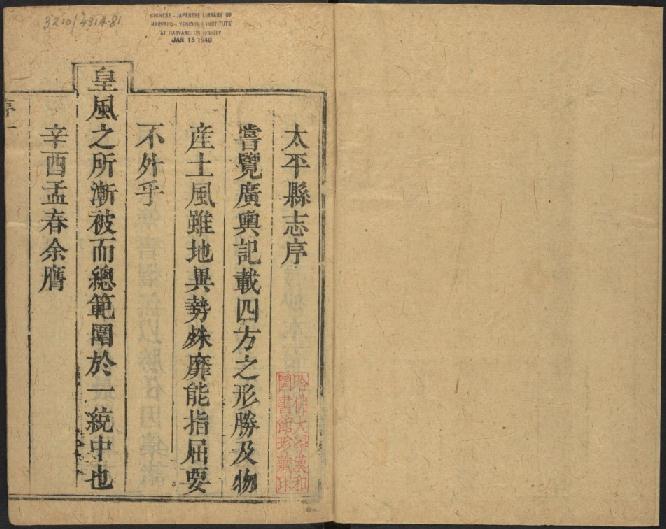 3210/4914.81
CHINESE-JAPANESE LIBRARY OF
HARVARD-YENCHING INSTITUTE
AT HARVARD UNIVERSITY
JAN 15 1940
太平縣志序
嘗覽廣輿記載四方之形勝及物
産土風雖地異勢殊靡能指屈要
不外乎
皇風之所漸被而總範圍於一統中也
辛酉孟春余膺
序一
哈佛大學漢和
圖書館珍藏印